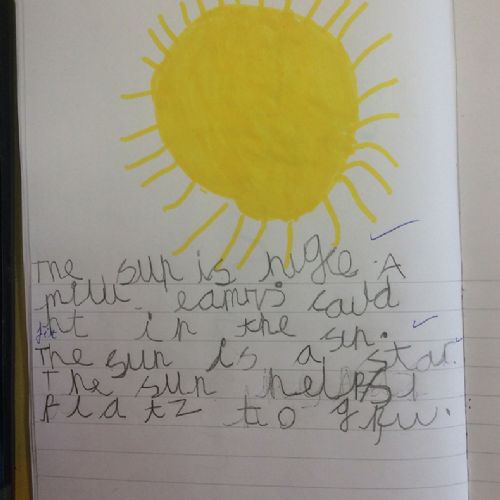 The sun is hige. A
mill earths could
fit in the sun.
The sun is a star.
The sun helps
Platz to grw.